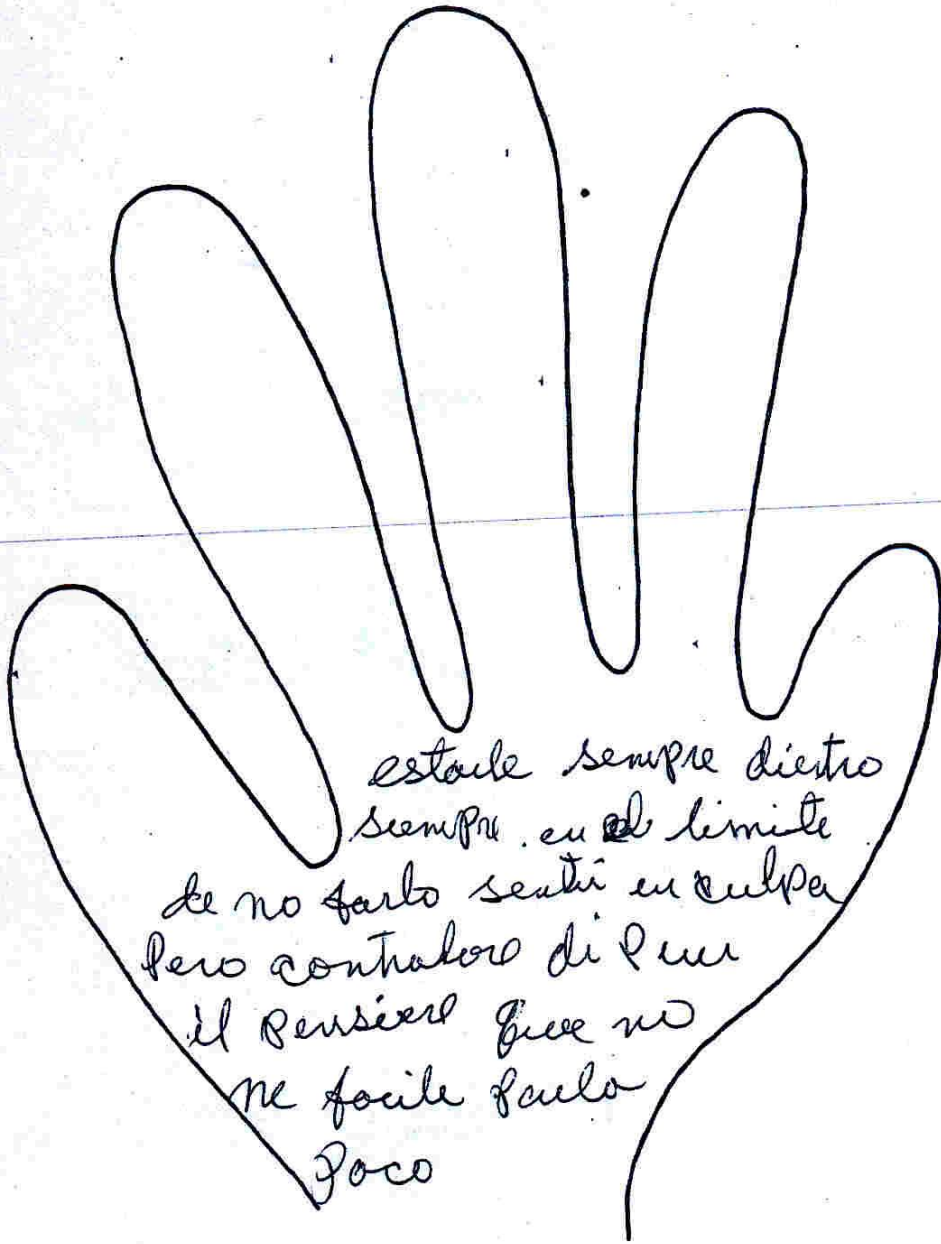 estarle sempre dientro
siempre en el limite
de no farlo sentir en culpa
Pero controlore di Piu
il Pensiere que no
ne facile Parla
Poco